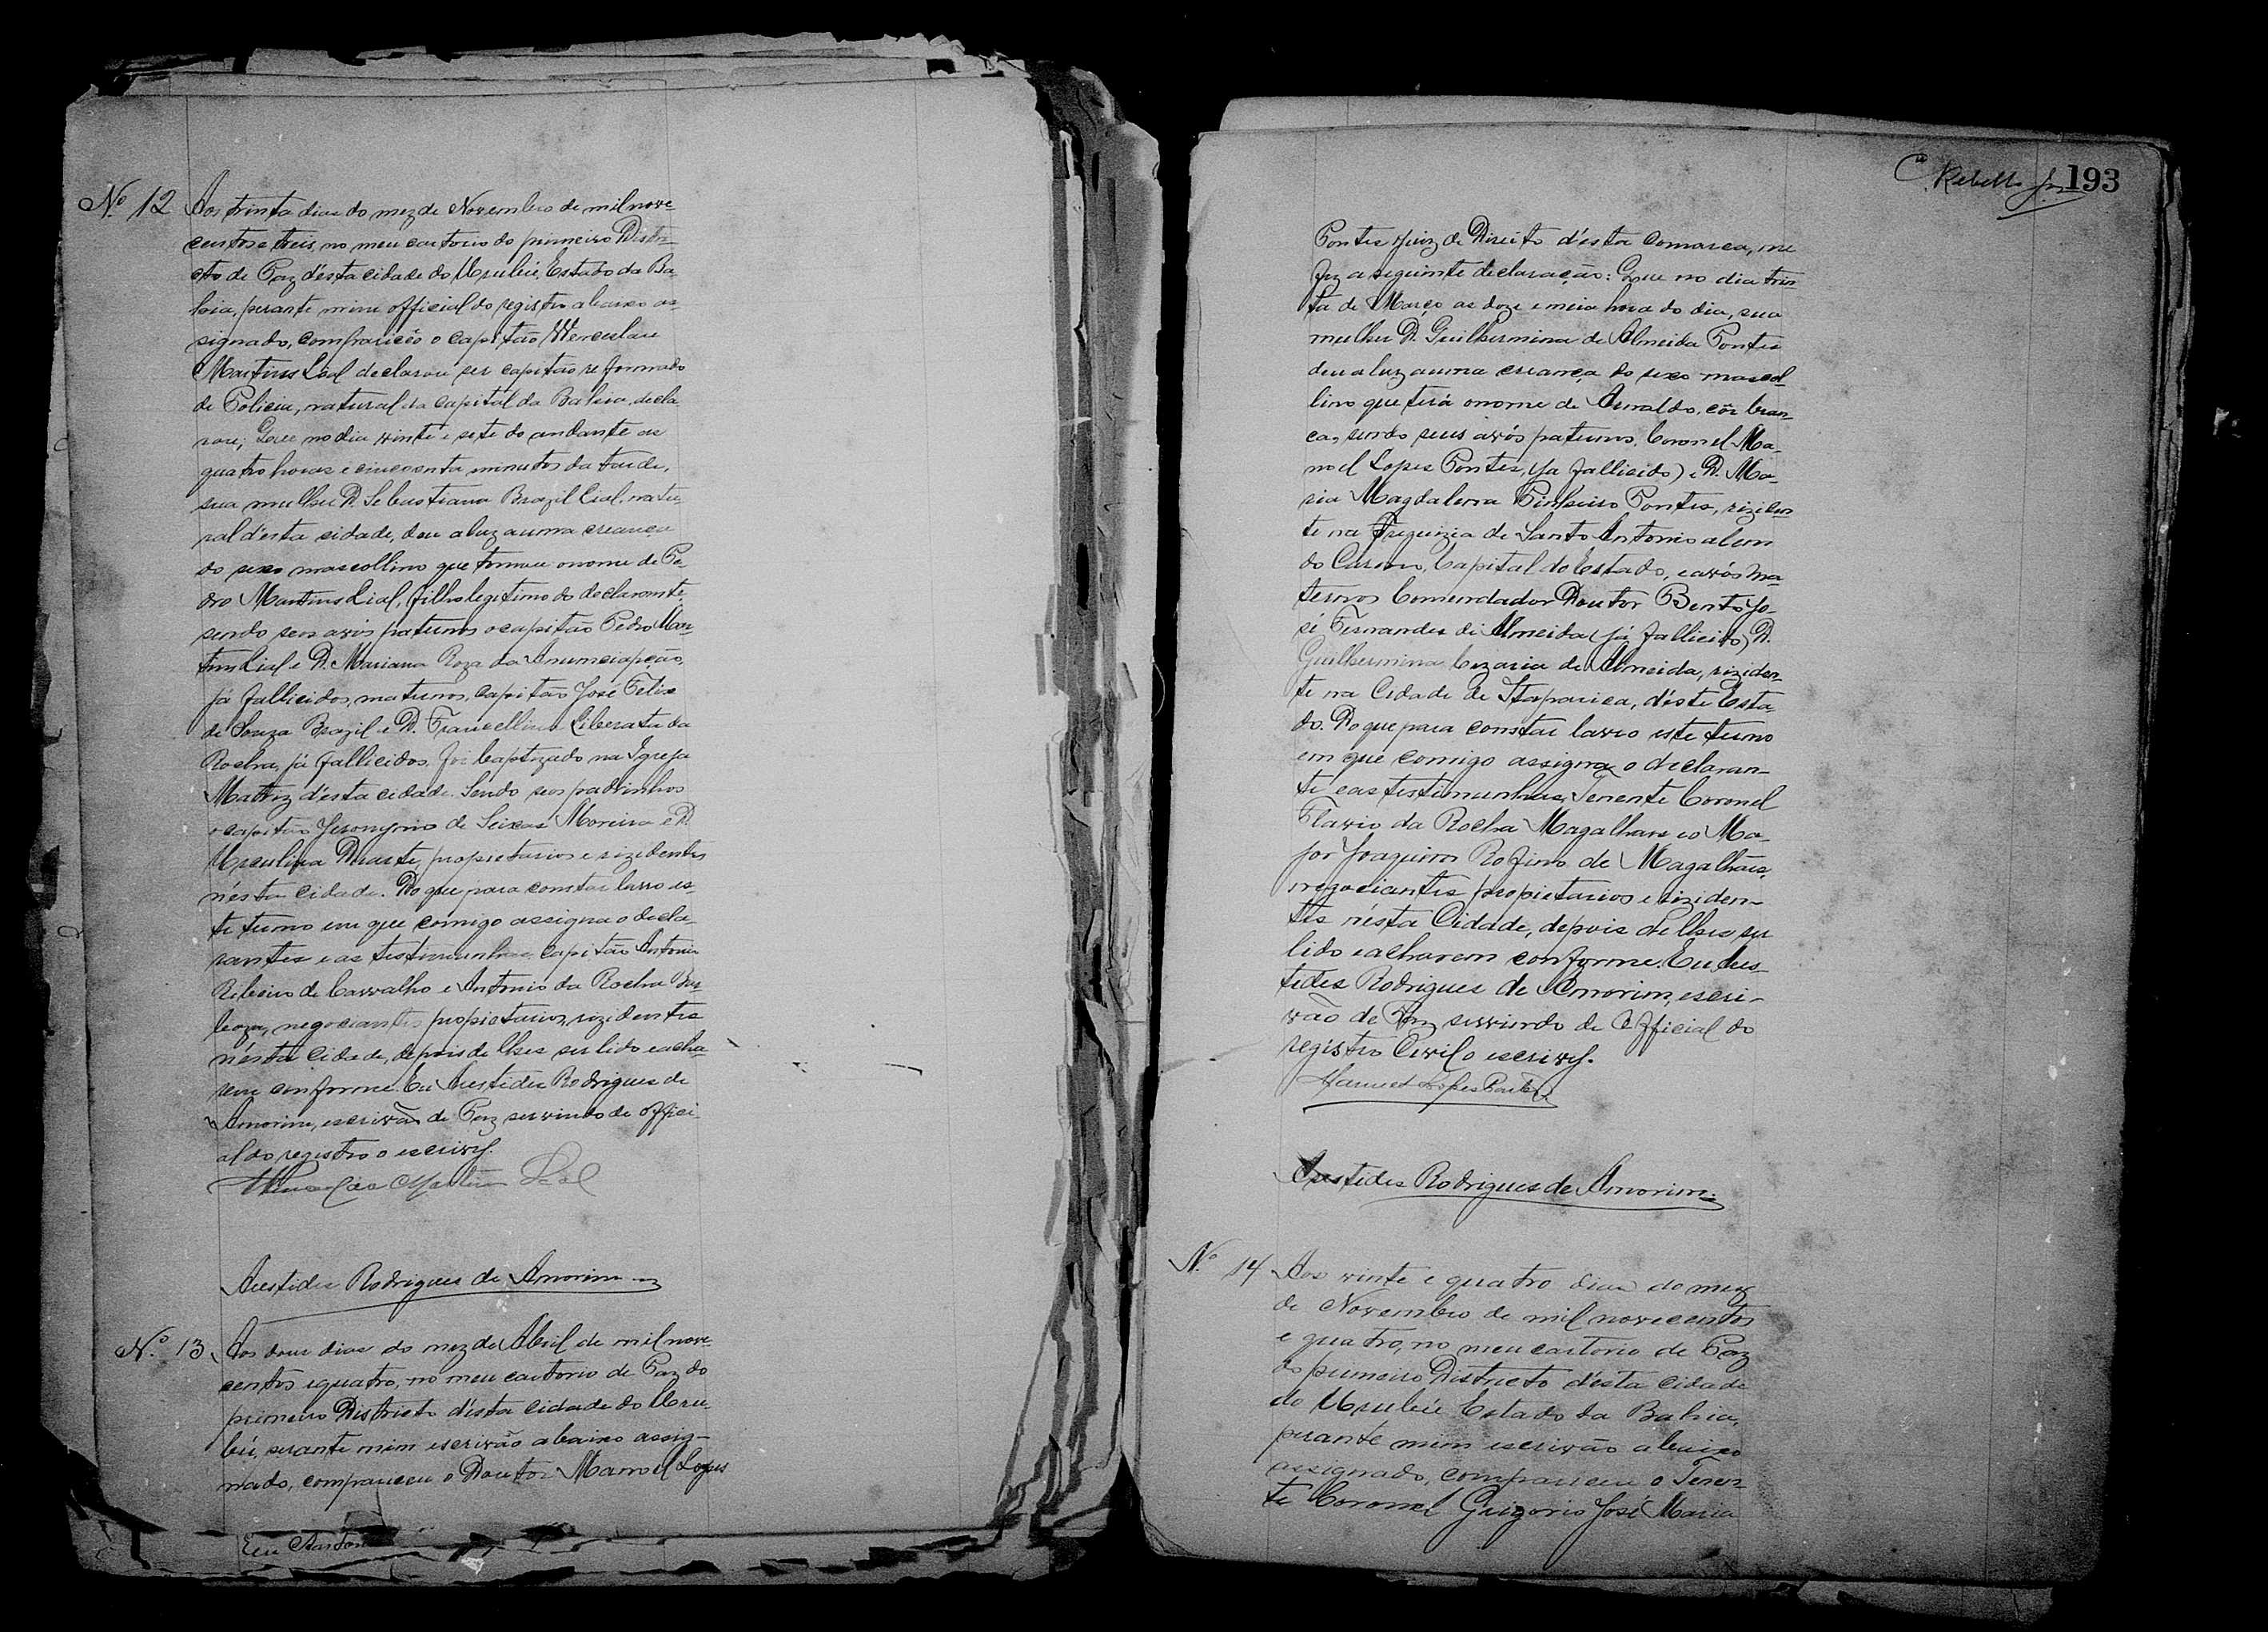 Nº 12 Aos trinta dias do mez de Novembro de mil nove-
centos e treis, no meu cartorio do primeiro Distri-
cto de Paz désta cidade do Urubú, Estado da Ba-
hia, perante mim official do registro abaixo as-
signado, compareceõ o capitão Wenceslau
Martins Leal declarou ser capitão reformado
de Policia, natural da Capital da Bahia, decla-
rou; Que no dia vinte e sete do andante as
quatro horas e cincoenta minutos da tarde,
sua mulher D. Sebastiana Brazil Lial, natu-
ral d'esta cidade, deu a luz a uma creança
do sexo mascollino que tomou o nome de Pe-
dro Martins Lial, filho legitimo do declarante
sendo seus avós paternos o capitão Pedro Mar-
tins Lial e D. Mariana Roza da Anunciapção,
já fallicidos, maternos, capitão José Felix
de Souza Brazil e D. Francellina Liberata da
Rocha, já fallicidos, foi baptizado na Igreja
Matriz d'esta cidade. Sendo seos padrinhos
o capitão Jeronymo de Seixas Moreira e D.
Urculina Duarte, propietarios e rizidentes
nésta cidade. Do que para constar lavro es-
te termo em que comigo assigna o decla-
rantes e as testimunhas, capitão Antonio
Ribeiro de Carvalho e Antonio da Rocha Bar
boza, negociantes propietarios, rizidentes
nésta cidade, depois de lhes ser lido e acha-
rem conforme. Eu Arestides Rodrigues de
Amorim, escrivão de Paz servindo de offici-
al do registro o escrivy.
Martins Leal
Arestides Rodrigues de Amorim
Nº 13 Aos dous dias do mez de Abril de mil nove-
centos e quatro, no meu cartorio de Paz do
primeiro Districto désta cidade do Uru-
bú, perante mim escrivão abaixo assig-
nado, compareceu o Doutor Manoel Lopes
Eu
C. Rebello 193
Pontes Juiz de Direito d'esta Comarca, me
fez a seguinte declaração: Que no dia trin-
ta de Março as doze e meia hora do dia, sua
mulher D. Guilhermina de Almeida Pontes
deu a luz a uma creança do sexo mascol-
lino que terá o nome de Arnaldo, côr bran-
ca, sendo seus avós paternos, Coronel Ma-
noel Lopes Pontes, (ja fallicido) e D. Ma-
ria Magdalena Pinheiro Pontes, riziden
te na Freguizia de Santo Antonio alem
do Carmo, Capital do Estado, e avós ma-
ternos Comendador Doutor Bento Jo-
sé Fernandes de Almeida (já fallicido) D.
Guilhermina Cezaria de Almeida, riziden-
te na Cidade de Itaparica, déste Esta-
do. Do que para constar lavro este termo
em que comigo assigna o declaran-
te e as testimunhas, Tenente Coronel
Flavio da Rocha Magalhães e o Ma-
jor Joaquim Rofino de Magalhães,
negociantes propietarios e riziden-
tes nésta Cidade, depois de lhes ser
lido e acharem conforme. Eu Ares-
tides Rodrigues de Amorim, escri-
vão de Paz servindo de Official do
registro Civil o escrivy.
Manoel Lopes Pontes
Arestides Rodrigues de Amorim.
Nº 14 Aos vinte e quatro dias do mez
de Novembro de mil novecentos
e quatro, no meu cartorio de Paz
do primeiro Districto d'ésta cidade
do Urubú Estado da Bahia,
perante mim escrivão abaixo
assignado, compareceu o Tenen-
te Coronel Grigorio José Maria